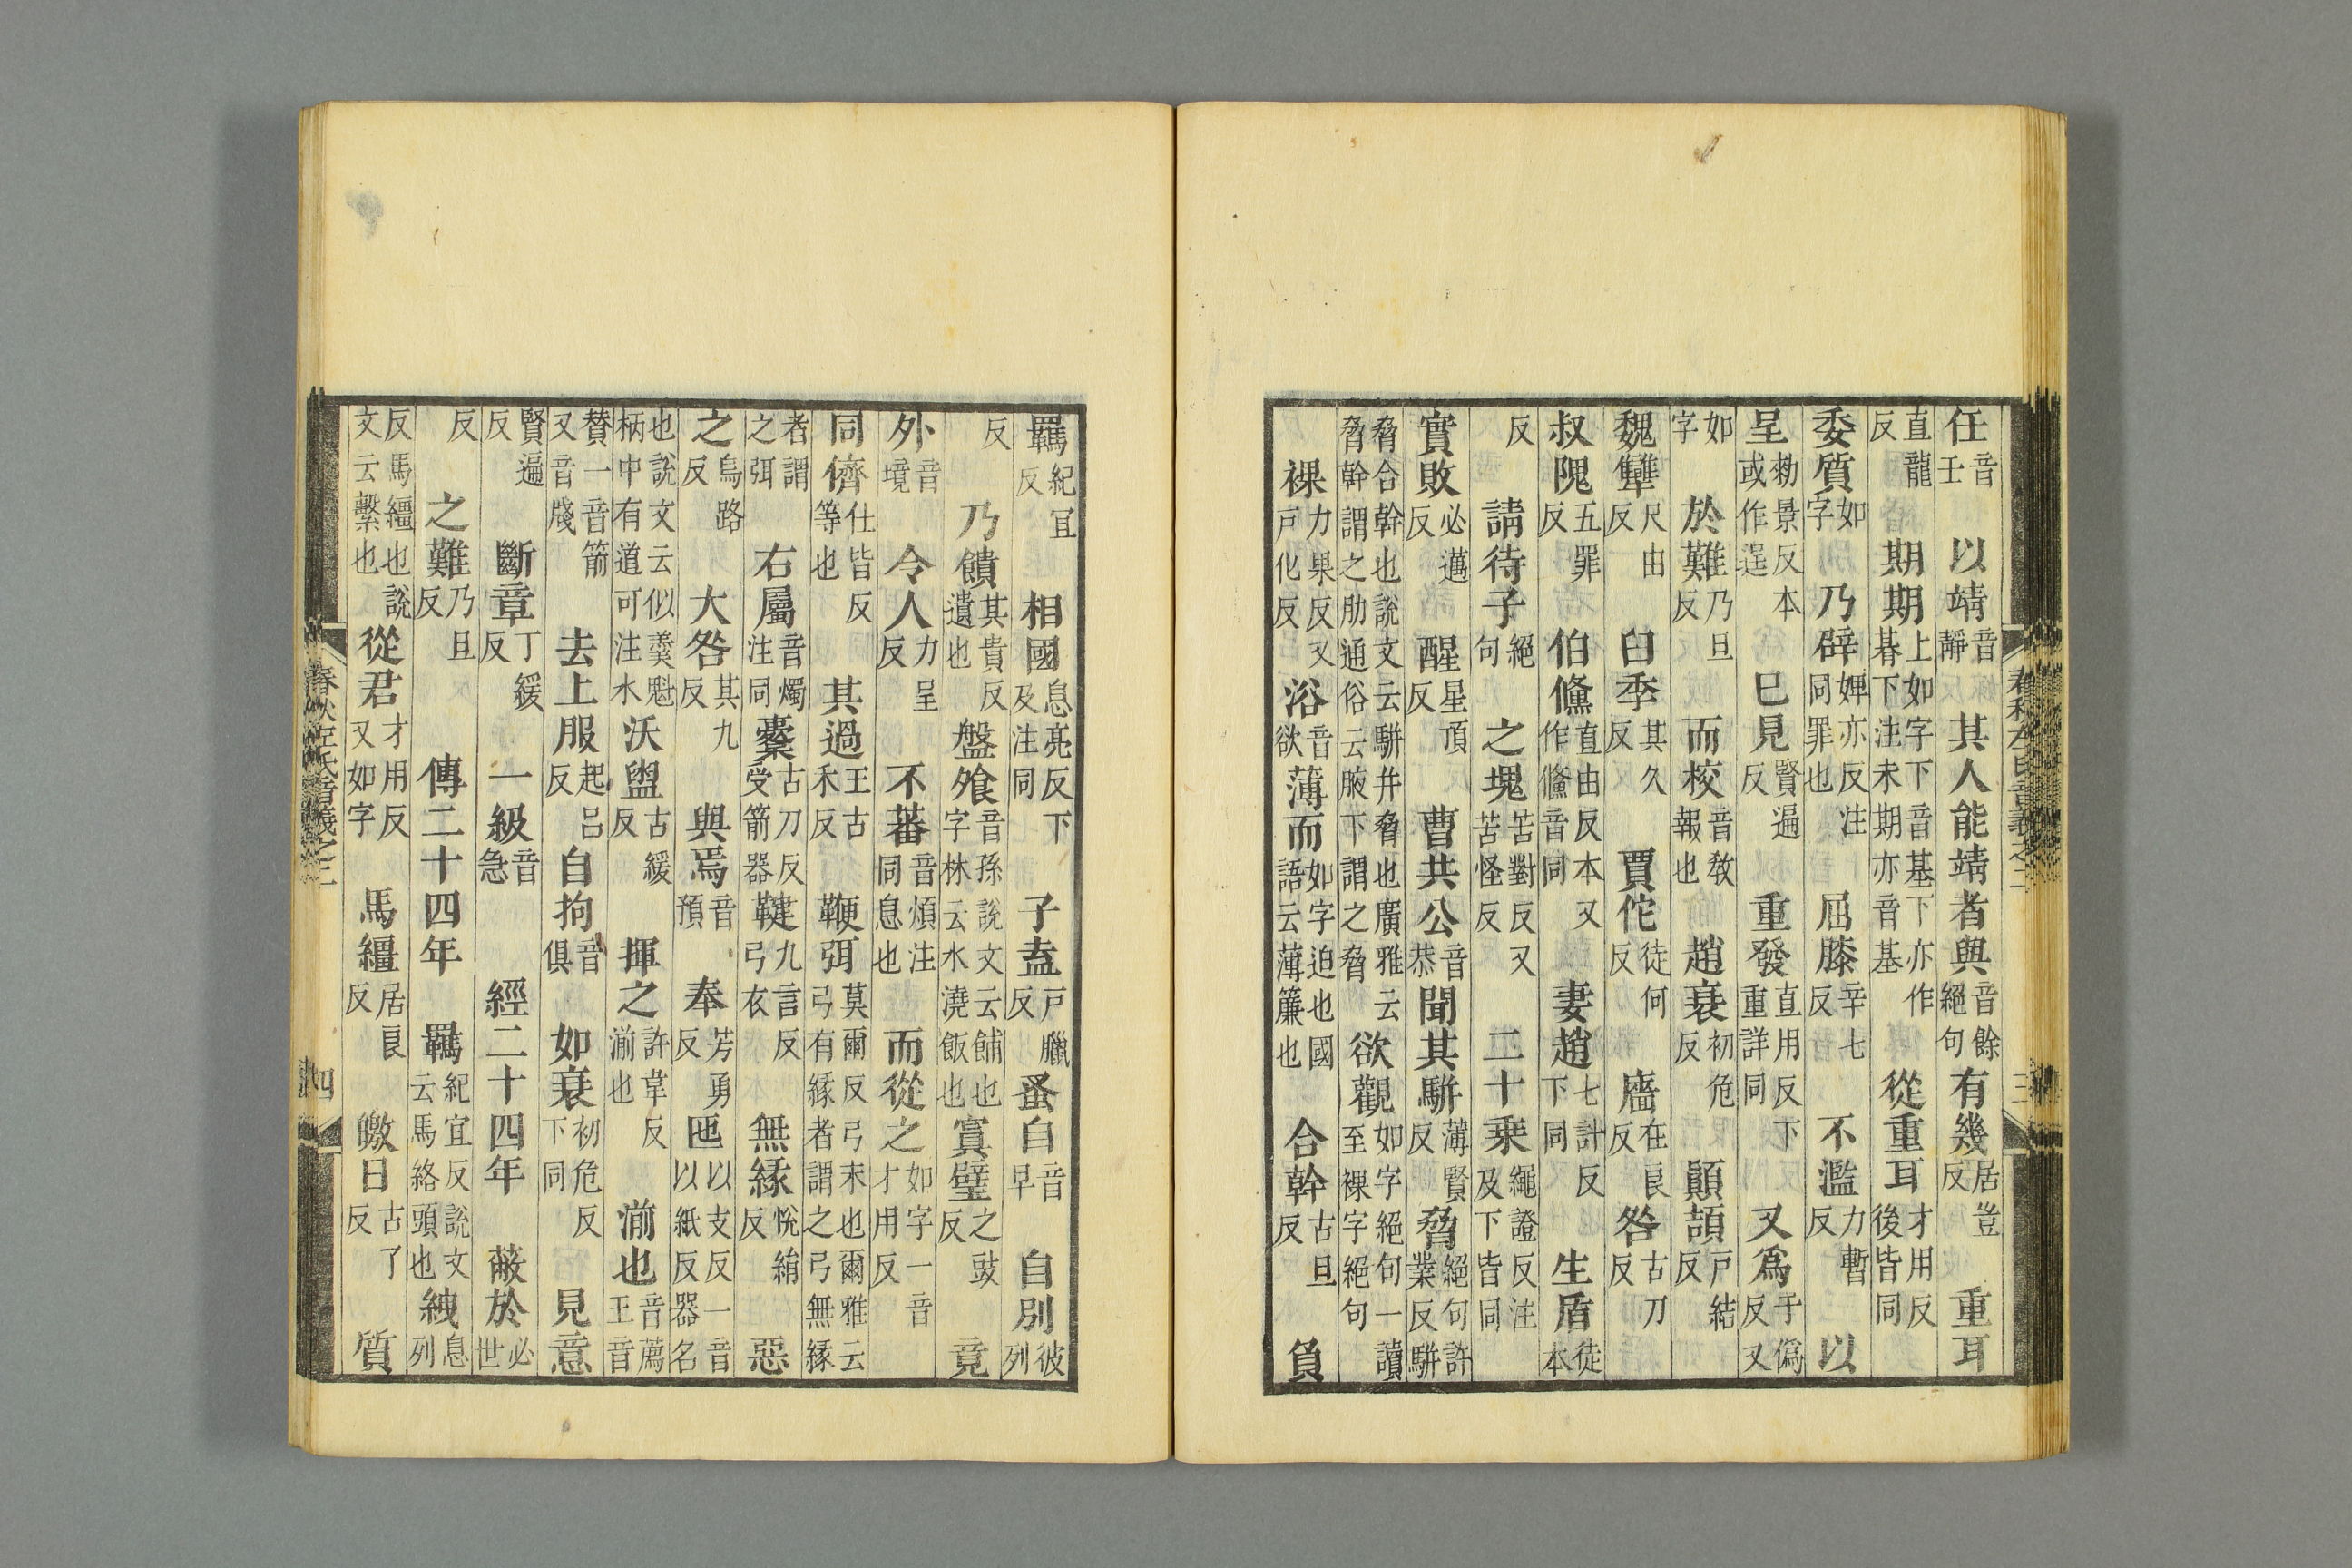 春秋左氏音義之二 三
任音壬 以靖音靜 其人能靖者與音餘絕句 有幾居豈反 重耳
直龍反 期期上如字下音基下亦作朞下注未期亦音基 從重耳才用反後皆同
委質如字 乃辟婢亦反注同罪也 屈膝辛七反 不濫力暫反 以
呈勑景反本或作逞 巳見賢遍反 重發直用反下重詳同 又為于偽反又
如字 於難乃旦反 而校音敎報也 趙衰初危反 顚頡戶結反
魏犫尺由反 臼季其久反 賈佗徒何反 廧在良反 咎古刀反
叔隗五罪反 伯鯈直由反本又作鯈音同 妻趙七計反下同 生盾徒本
反 請待子絕句 之塊苦對反又苦怪反 二十乗繩證反注及下皆同
實敗必邁反 醒星頂反 曹共公音恭 聞其駢薄賢反 脅絕句許業反駢
脅合幹也說文云駢幷脅也廣雅云脅幹謂之肋通俗云腋下謂之脅 欲觀如字絕句一讀至裸字絕句
裸力果反又戶化反 浴音欲 薄而如字迫也國語云薄簾也 合幹古旦反 負
羈紀宜反 相國息亮反下及注同 子盍戶臘反 蚤自音早 自別彼列
反 乃饋其貴反遺也 盤飧音孫說文云餔也字林云水澆飯也 寘璧之豉反 竟
外音境 令人力呈反 不蕃音煩注同息也 而從之如字一音才用反
同儕仕皆反等也 其過王古禾反 鞭弭莫爾反弓末也爾雅云弓有緣者謂之弓無緣
者謂之弭 右屬音燭注同 櫜古刀反受箭器 鞬九言反弓衣 無緣悅絹反 惡
之烏路反 大咎其九反 與焉音預 奉芳勇反 匜以支反一音以紙反器名
也說文云似羹魁柄中有道可注水 沃盥古緩反 揮之許韋反湔也 湔也音薦王音
贊一音箭又音牋 去上服起呂反 自拘音俱 如衰初危反下同 見意
賢遍反 斷章丁緩反 一級音急 經二十四年 蔽於必世
反 之難乃旦反 傳二十四年 羈紀宜反說文云馬絡頭也 紲息列
反馬繮也說文云繫也 從君才用反又如字 馬繮居良反 皦日古了反 質
春秋左氏音義之二 四